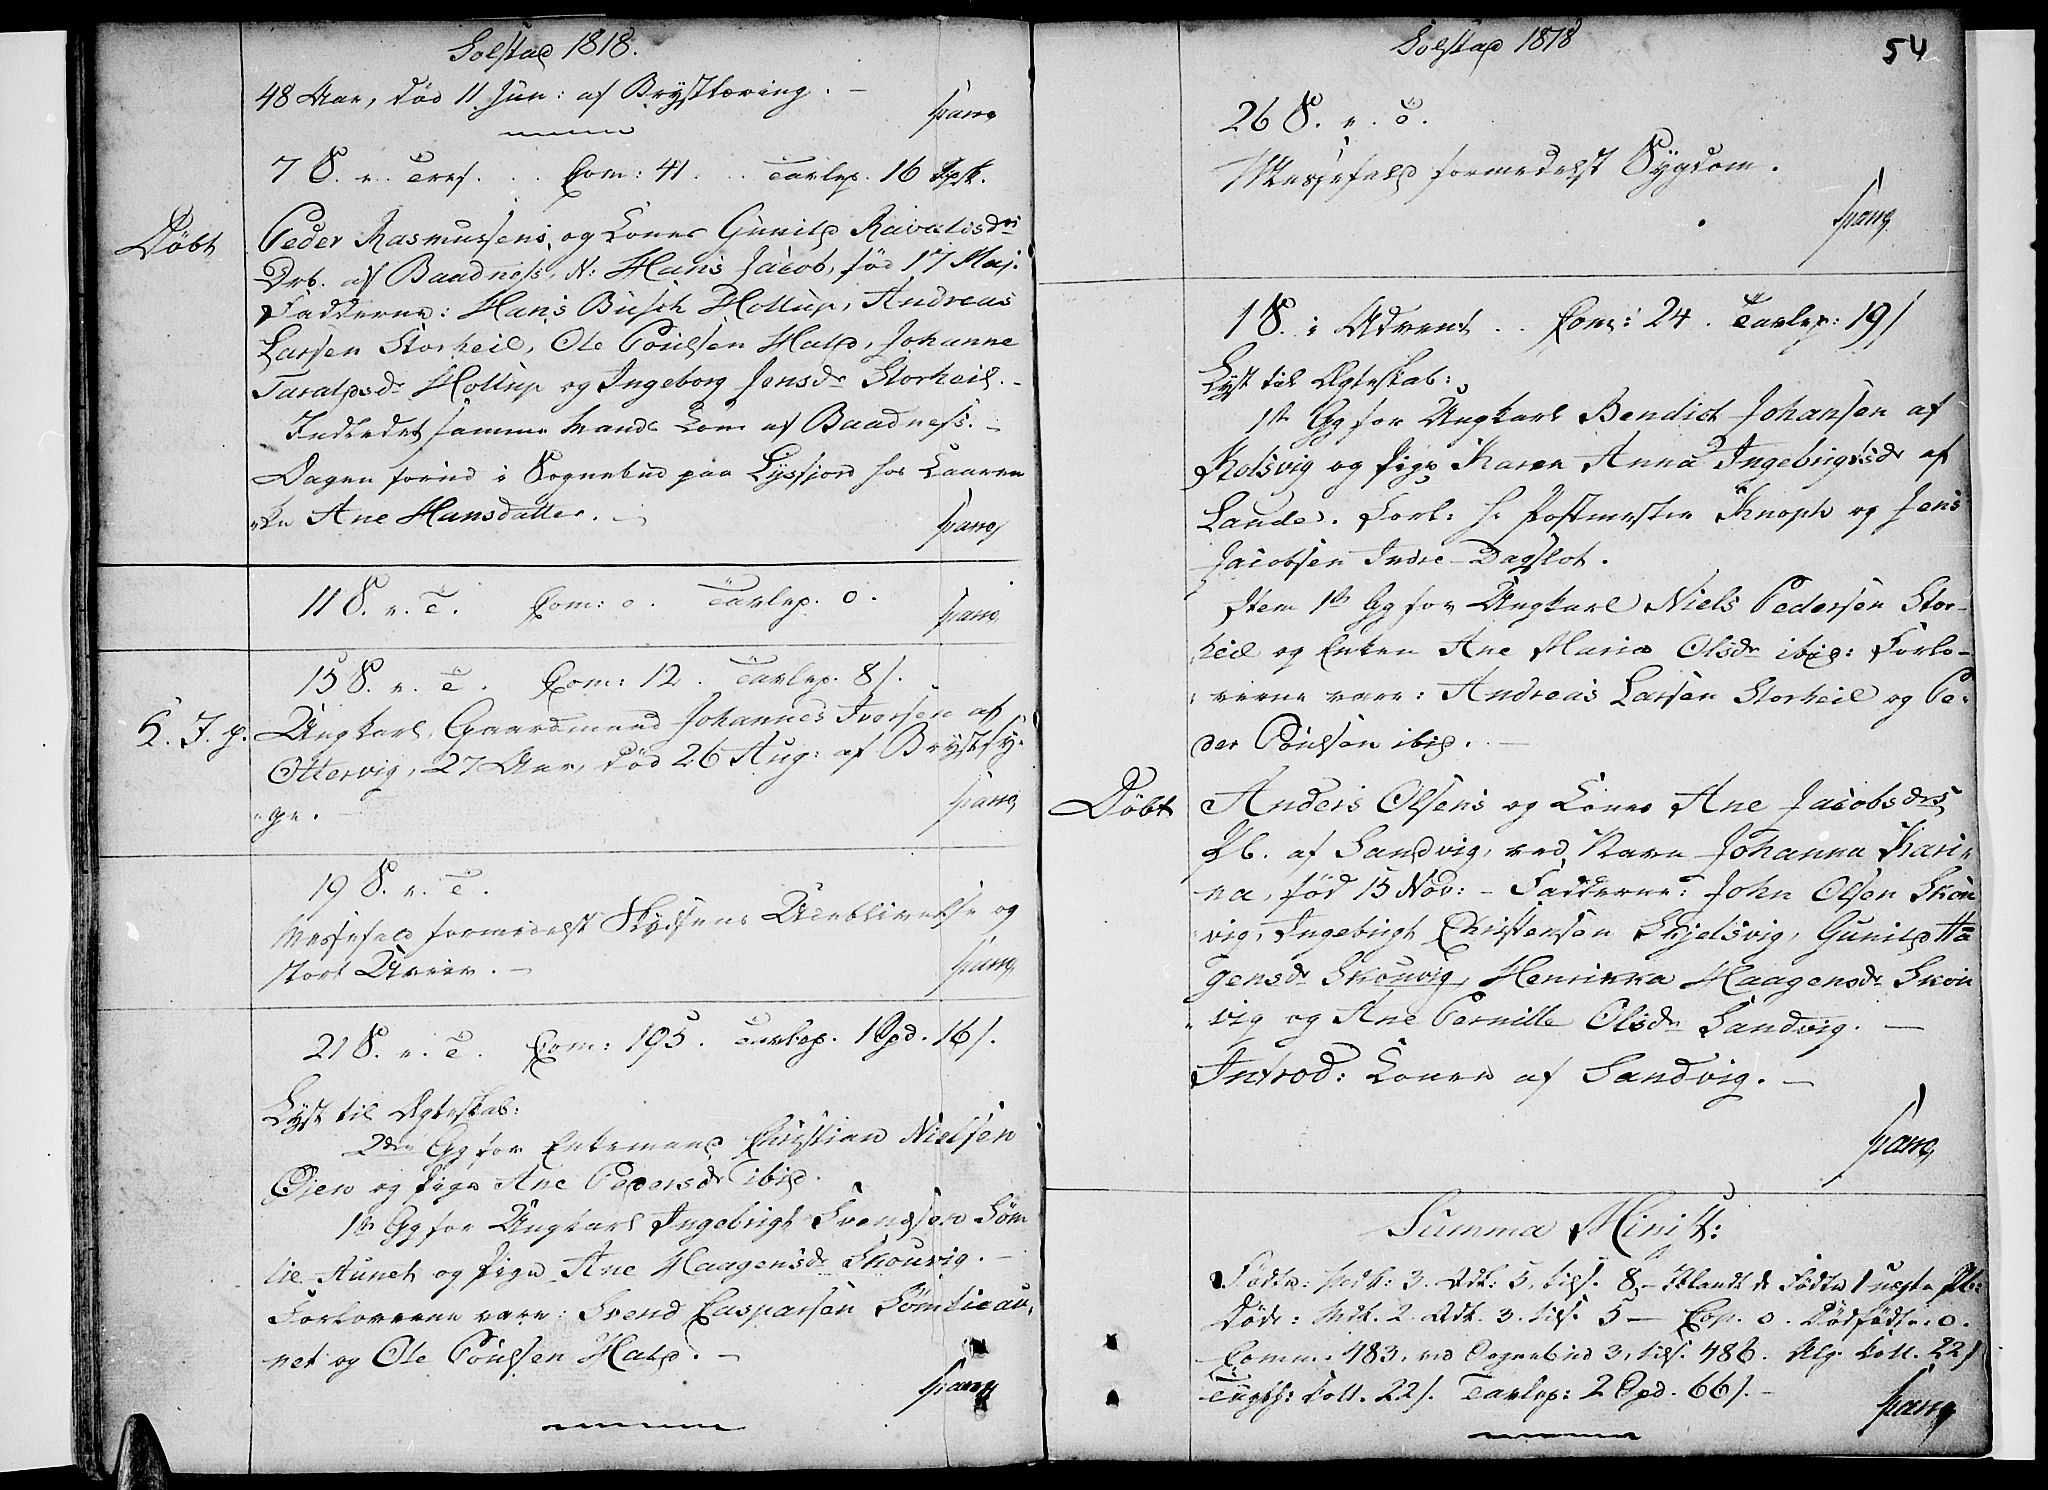 Solstad 1818.
48 Aar, død 11 Jun: af Brysttæring. –
Spang
7 S. e. Tres. . . Com: 41 . . Tavlep. 16
Døbt
Peder Rasmussens og Kones Gunild
Drb. af Baadness, N: Hans Jacob, fød 17 Maj.
Fadderne: Hans Busch Hollup, Andreas
Larsen Storheil, Ole Poulsen Hald, Johanne
Taraldsdr Hollup og Ingeborg Jensdr Storheil. –
Indledet samme Mands Kone af Baadness. –
Dagen forud i Sognebud paa Lysfjord hos Kaaren
Ane Hansdatter. –
Spang
11 S. e. T. Com: 0. Tavlep. 0.
Spang
15 S. e. T. Com: 12. Tavlep. 8 s.
K. J. p.
Ungkarl, Gaardmand Johannes Iversen af
Ottervig, 27 Aar, død 26 Aug: af Brystsy-
ge. –
Spang
19 S. e. T.
Messefald formedelst Skydsens Udeblivelse og
stort Uveir. –
Spang
21 S. e. T. Com: 195. Tavlep. 1 Spd. 16 s.
Lyst til Ægteskab:
2den Gg for Enkemand Christian Nielsen
Øien og Pige Ane Pedersdr ibid.
1ste Gg for Ungkarl Ingebrigt Svendsen Søm
lie Aunet og Pige Ane Haagensdr Skouvig. –
Forloverne vare: Svend Caspersen Sømlieau-
net og Ole Poulsen Hald. –
Spang
Solstad 1818
54
26 S. e. T.
Messefald formedelst Sygdom.
Spang
1 S. i Advent . . Com: 24 . Tavlep: 19 s
Lyst til Ægteskab:
1ste Gg for Ungkarl Bendict Johansen af
Kolsvig og Pige Karen Anna Ingebrigtsdr af
Lande. Forl: Hr Postmester Knoph og Jens
Jacobsen Indre-Dagslot.
Item 1ste Gg for Ungkarl Niels Pedersen Stor-
heil og Enken Ane Maria Olsdr ibid: Forlo-
verne vare: Andreas Larsen Storheil og Pe-
der Poulsen ibid. –
Døbt
Anders Olsens og Kones Ane Jacobsdrs
Pb. af Sandvig, ved Navn Johanna Kari-
na, fød 15 Nov: – Fadderne: John Olsen Skou
vig, Ingebrigt Christensen Skjelsvig, Gunild Ha
gensdr Skouvig, Henrikka Haagensdr Skou
vig og Ane Pernille Olsdr Sandvig. –
Introd: Konen af Sandvig. –
Spang
Summa Minist:
Fødte: Mdk: 3. Qdk: 5, tils. 8 – Blandt de Fødte 1 uægte Pb:
Døde: Mdk. 2. Qdk. 3. tils. 5 – Cop. 0. Dødfødte. 0.
Comm: 483, ved Sognebud 3, tils. 486. Alg. Koll. 22 s
Tugth: Koll. 22 s. Tavlep: 2 Spd. 66 s. –
Spang